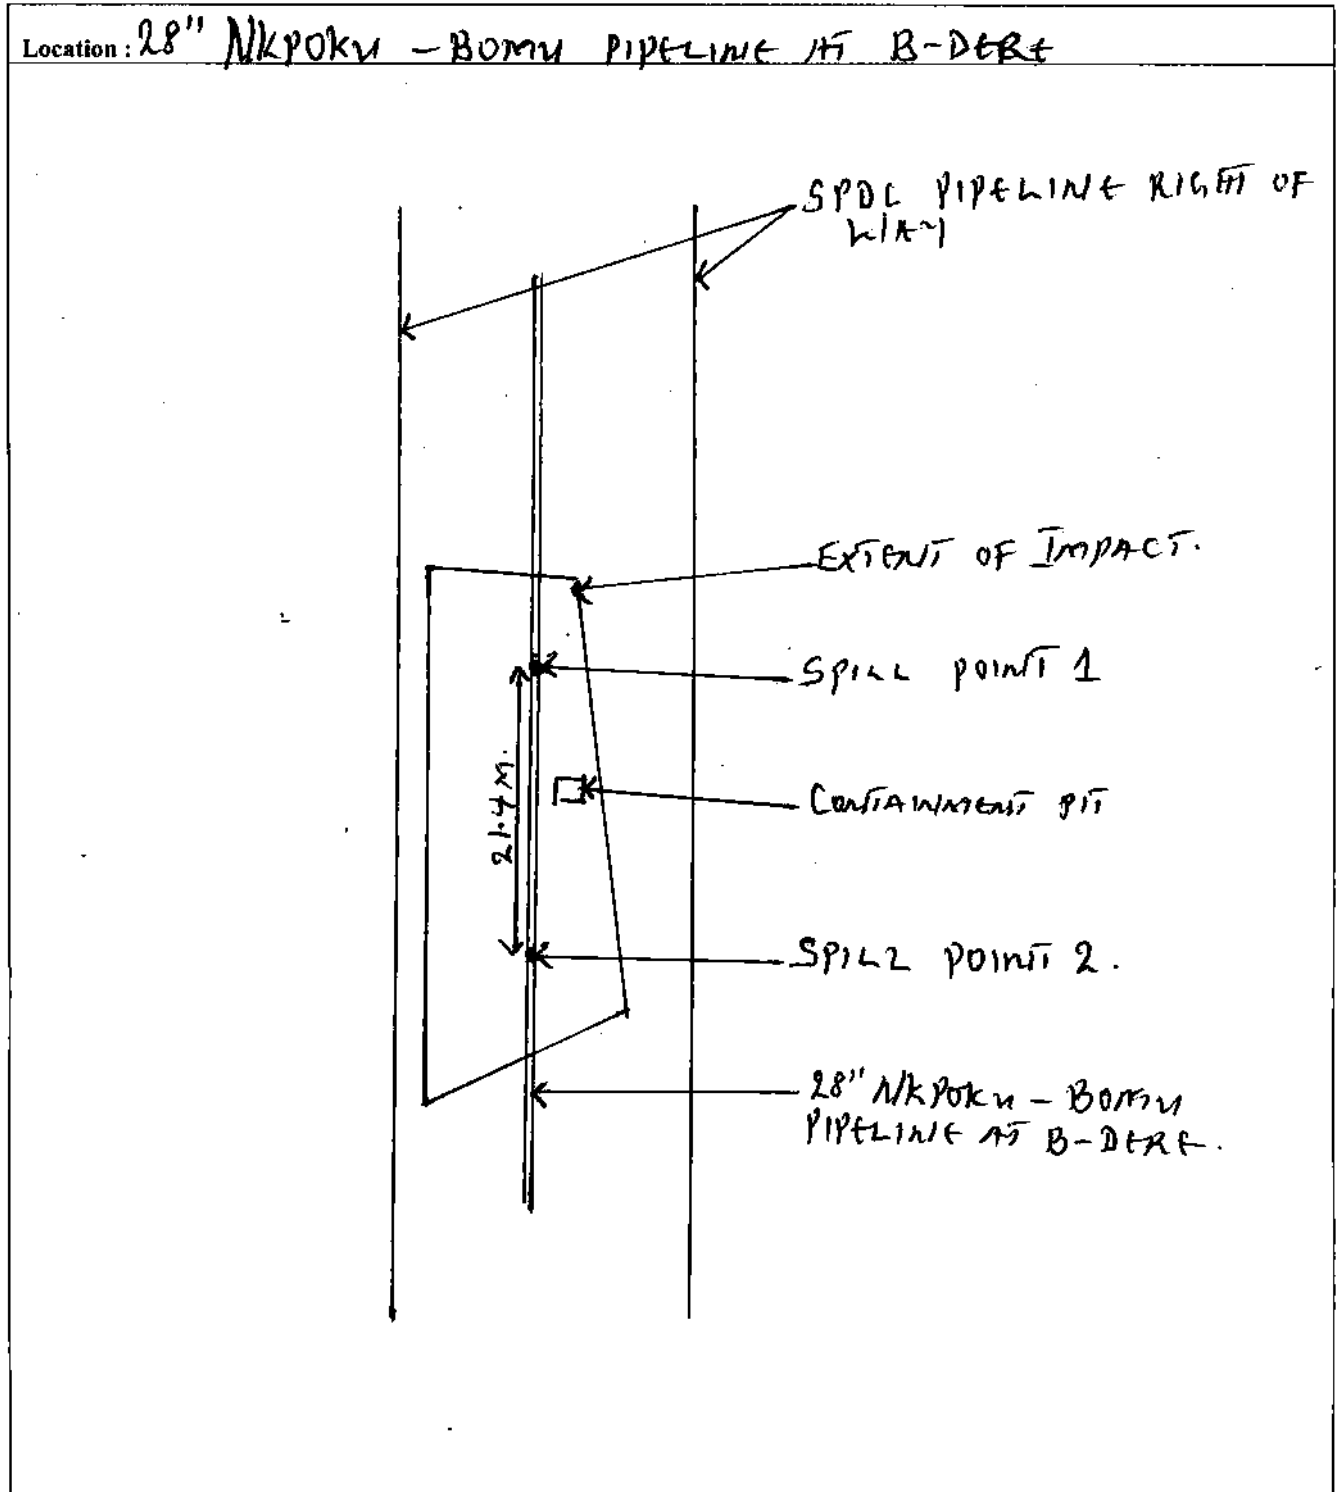 Location : 28" NKPOKU - BOMU PIPELINE AT B-DERE
SPDC PIPELINE RIGHT OF
WAY
EXTENT OF IMPACT.
SPILL POINT 1
21.4M.
CONTAINMENT PIT
SPILL POINT 2.
28" NKPOKU - BOMU
PIPELINE AT B-DERE.